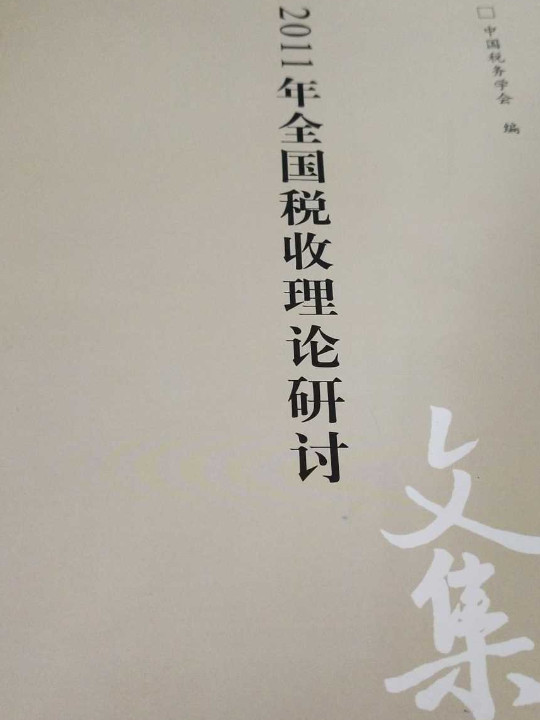 □ 中国税务学会 编
2011年全国税收理论研讨
文集